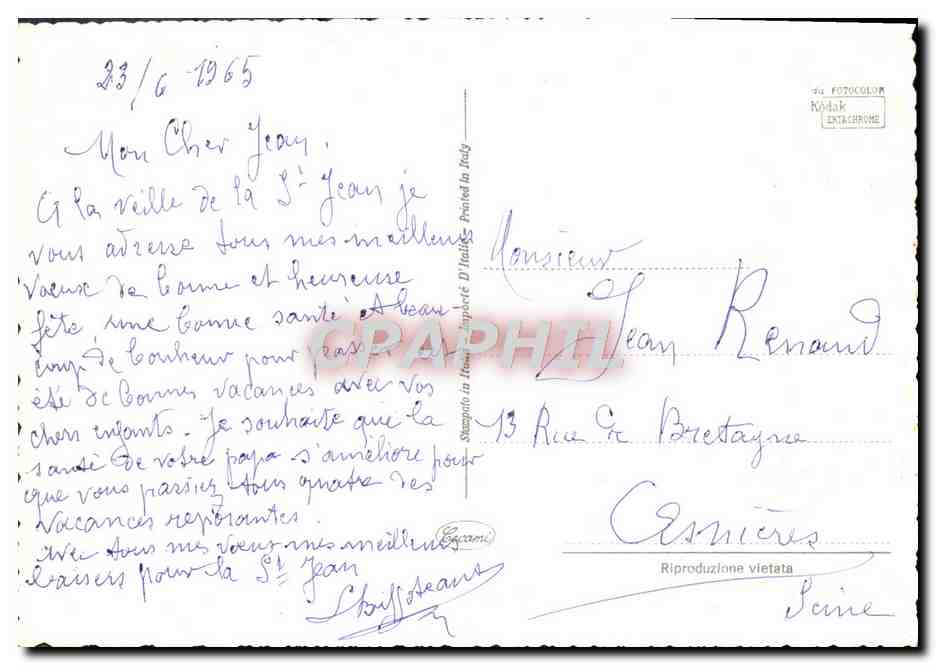 23/6 1965
Mon Cher Jean,
A la veille de la St Jean je
vous adresse tous mes meilleurs
voeux de bonne et heureuse
fête une bonne santé et beau-
coup de bonheur pour passer cet
été de bonnes vacances avec vos
chers enfants. Je souhaite que la
santé de votre papa s'améliore pour
que vous passiez tous quatre des
vacances reposantes.
avec tous mes voeux mes meilleurs
baisers pour la St Jean
CPARPHIL
Stampato in Italia - Importé D'Italie - Printed in Italy
Cecami
da FOTOCOLOR
Kodak
EKTACHROME
Monsieur
Jean Renaud
13 Rue de Bretagne
Asnières
Riproduzione vietata
Seine